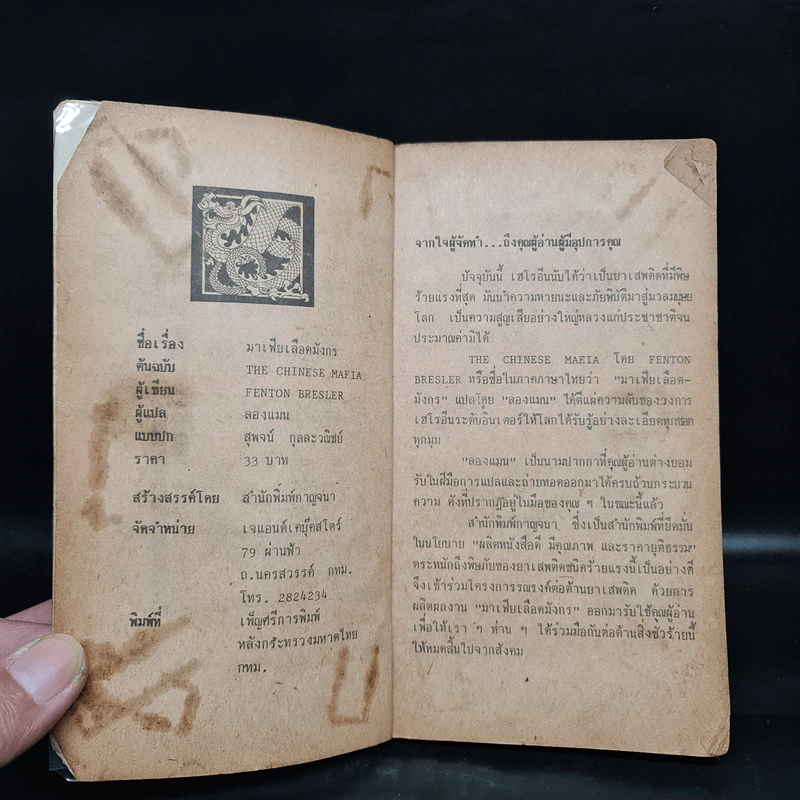 ชื่อเรื่อง มาเฟียเลือดมังกร
ต้นฉบับ THE CHINESE MAFIA
ผู้เขียน FENTON BRESLER
ผู้แปล ลองแมน
แบบปก สุพจน์ กุลละวณิชย์
ราคา 33 บาท
สร้างสรรค์โดย สำนักพิมพ์กาญจนา
จัดจำหน่าย เจแอนด์เคบุ๊คสโตร์
79 ผ่านฟ้า
ถ.นครสวรรค์ กทม.
โทร. 2824234
พิมพ์ที่ เพ็ญศรีการพิมพ์
หลังกระทรวงมหาดไทย
กทม.
จากใจผู้จัดทำ...ถึงคุณผู้อ่านผู้มีอุปการคุณ
ปัจจุบันนี้ เฮโรอีนนับได้ว่าเป็นยาเสพติดที่มีพิษ
ร้ายแรงที่สุด มันนำความหายนะและภัยพิบัติมาสู่มวลมนุษย
โลก เป็นความสูญเสียอย่างใหญ่หลวงแก่ประชาชาติจน
ประมาณค่ามิได้
THE CHINESE MAEIA โดย FENTON
BRESLER หรือชื่อในภาคภาษาไทยว่า "มาเฟียเลือด-
มังกร" แปลโดย "ลองแมน" ได้ตีแผ่ความลับของวงการ
เฮโรอีนระดับอินเตอร์ให้โลกได้รับรู้อย่างละเอียดทุกซอก
ทุกมุม
"ลองแมน" เป็นนามปากกาที่คุณผู้อ่านต่างยอม
รับในฝีมือการแปลและถ่ายทอดออกมาได้ครบถ้วนกระบวน
ความ ดังที่ปรากฏอยู่ในมือของคุณ ๆ ในขณะนี้แล้ว
สำนักพิมพ์กาญจนา ซึ่งเป็นสำนักพิมพ์ที่ยึดมั่น
ในนโยบาย "ผลิตหนังสือดี มีคุณภาพ และราคายุติธรรม"
ตระหนักถึงพิษภัยของยาเสพติดชนิดร้ายแรงนี้เป็นอย่างดี
จึงเข้าร่วมโครงการรณรงค์ต่อต้านยาเสพติด ด้วยการ
ผลิตผลงาน "มาเฟียเลือดมังกร" ออกมารับใช้คุณผู้อ่าน
เพื่อให้เรา ๆ ท่าน ๆ ได้ร่วมมือกันต่อต้านสิ่งชั่วร้ายนี้
ให้หมดสิ้นไปจากสังคม